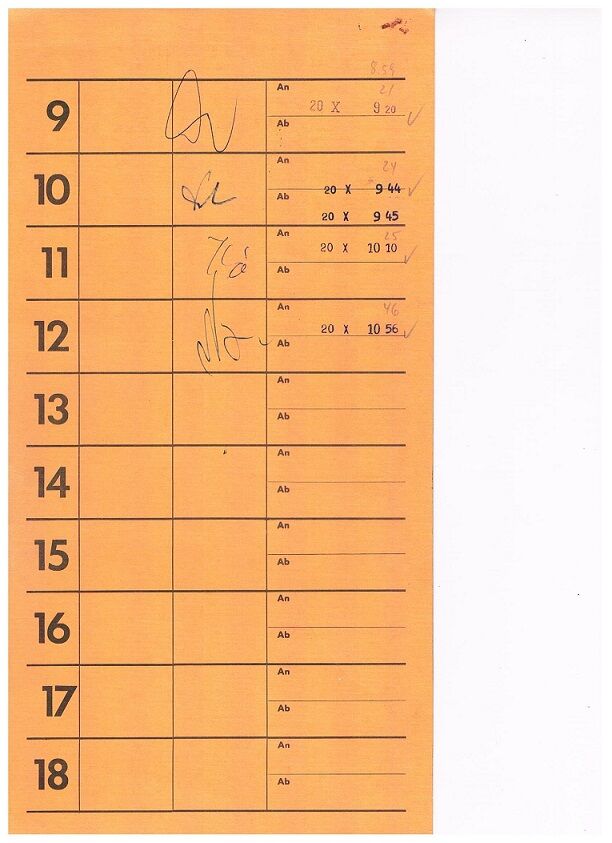 8.59
An
21
9
20 X 9 20
Ab
An
24
10
Ab
20 X 9 44
20 X 9 45
An
25
11
20 X 10 10
Ab
An
46
12
20 X 10 56
Ab
An
13
Ab
An
14
Ab
An
15
Ab
An
16
Ab
An
17
Ab
An
18
Ab